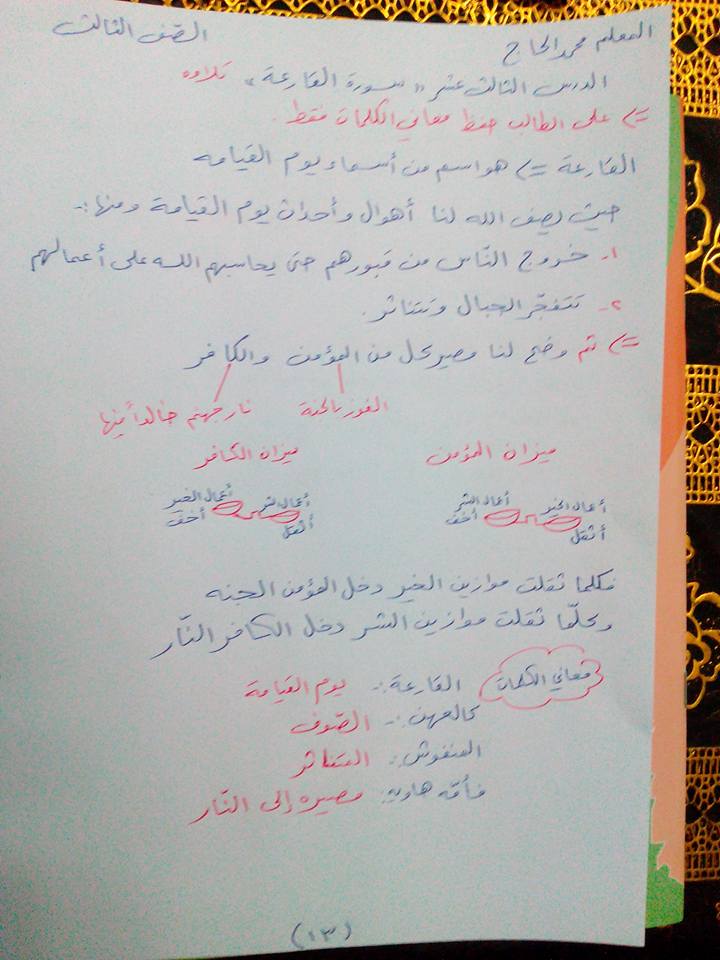 المعلم محمد الحاج الصف الثالث
الدرس الثالث عشر "سورة القارعة" تلاوه
=> على الطالب حفظ معاني الكلمات فقط.
القارعة => هو اسم من أسماء يوم القيامه
حيث يصف الله لنا أهوال وأحداث يوم القيامة ومنها:-
١- خروج النّاس من قبورهم حتى يحاسبهم الله على أعمالهم
٢- تتفجّر الجبال وتتناثر.
=> ثم وضح لنا مصير كل من المؤمن والكافر
الفوز بالجنة نار جهنم خالداً فيها
ميزان المؤمن ميزان الكافر
أعمال الخير أثقل أعمال الشر أخف
أعمال الشر أثقل أعمال الخير أخف
فكلما ثقلت موازين الخير دخل المؤمن الجنه
وكلّما ثقلت موازين الشر دخل الكافر النّار
معاني الكلمات القارعة:- يوم القيامة
كالعهن:- الصّوف
المنفوش:- المتناثر
فأمّه هاويه: مصيره إلى النّار
(١٣)